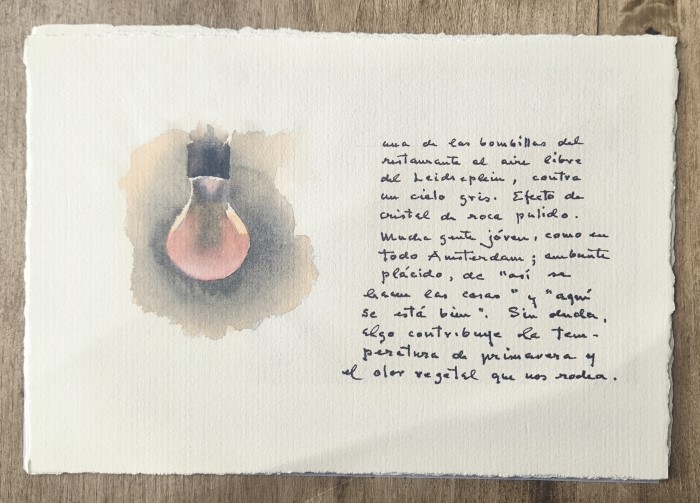 una de las bombillas del
restaurante al aire libre
del Leidseplein, contra
un cielo gris. Efecto de
cristal de roca pulido.
Mucha gente jóven, como en
todo Amsterdam; ambiente
plácido, de "así se
hacen las cosas" y "aquí
se está bien". Sin duda,
algo contribuye la tem-
peratura de primavera y
el olor vegetal que nos rodea.